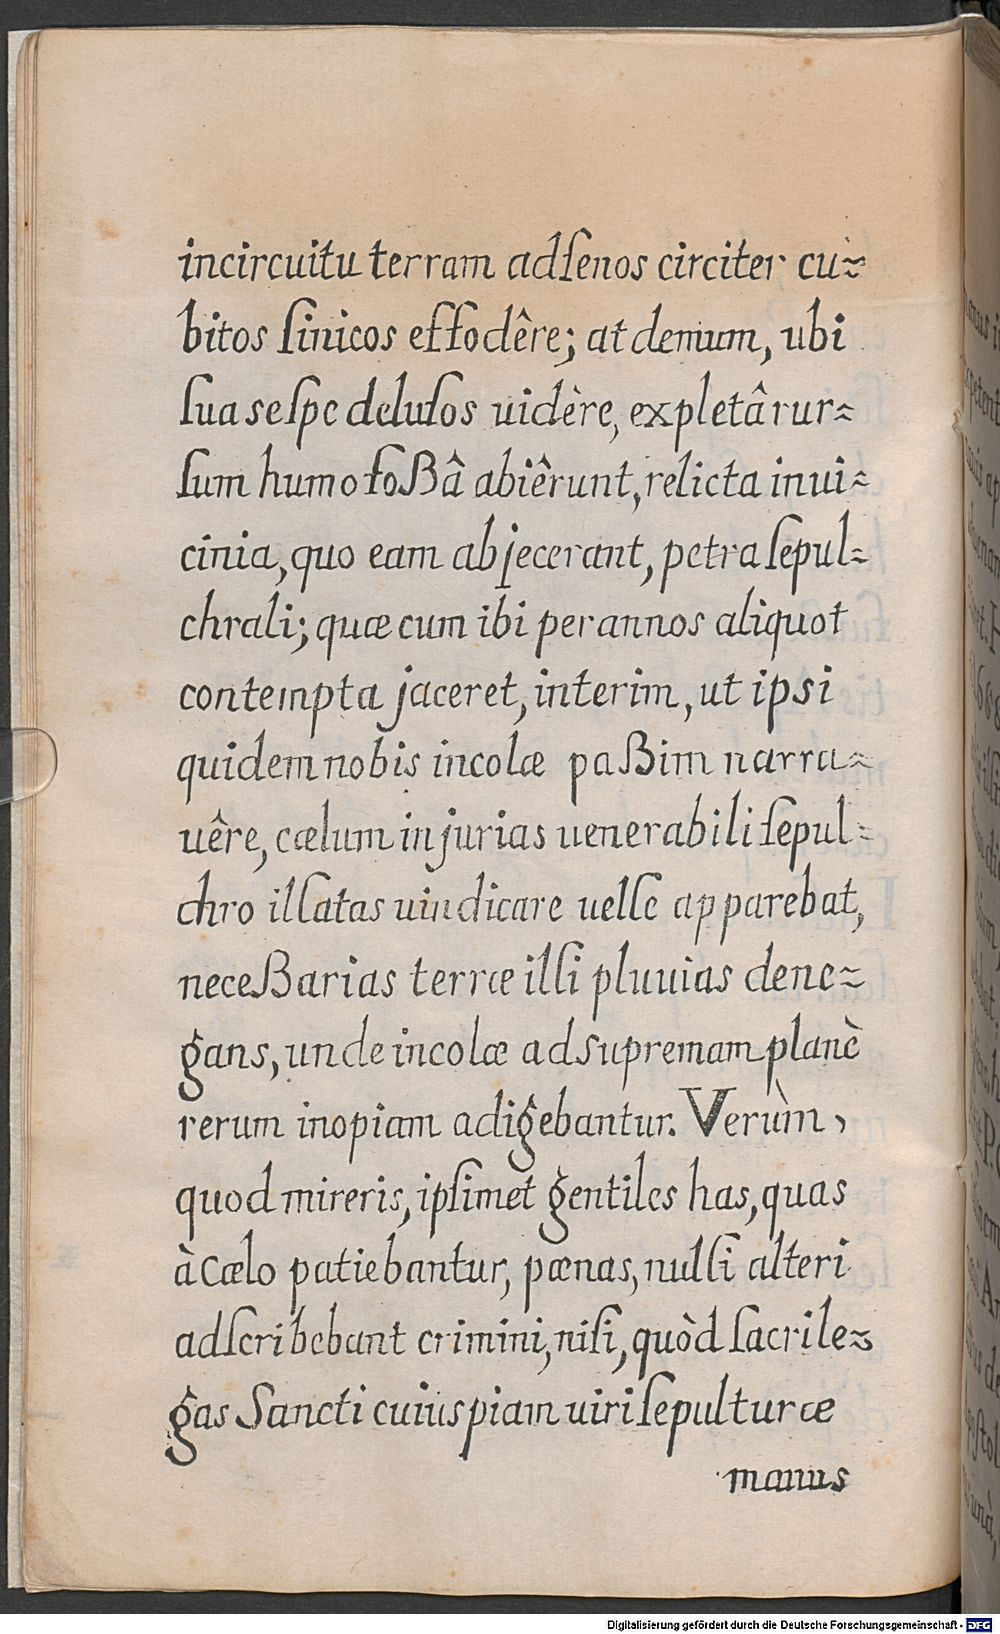 incircuitu terram adſenos circiter cu⸗
bitos ſinicos eſſodêre; at demum, ubi
ſua seſpe deluſos uidère, expletâ rur⸗
ſum humo foßâ abiêrunt, relicta inui⸗
cinia, quo eam abjecerant, petra ſepul⸗
chrali; quæ cum ibi perannos aliquot
contempta jaceret, interim, ut ipsi
quidem nobis incolæ paßim narra⸗
uêre, cœlum injurias uenerabili ſepul⸗
chro illatas uindicare uelle apparebat,
neceßarias terræ illi pluuias dene⸗
gans, unde incolæ adsupremam planè
rerum inopiam adigebantur. Verùm,
quod mireris, ipſimet gentiles has, quas
à Cælo patiebantur, pœnas, nulli alteri
adſcribebant crimini, niſi, quòd ſacrile⸗
gas Sancti cuiuspiam uiri ſepulturæ
manus
Digitalisierung gefördert durch die Deutsche Forschungsgemeinschaft - DFG